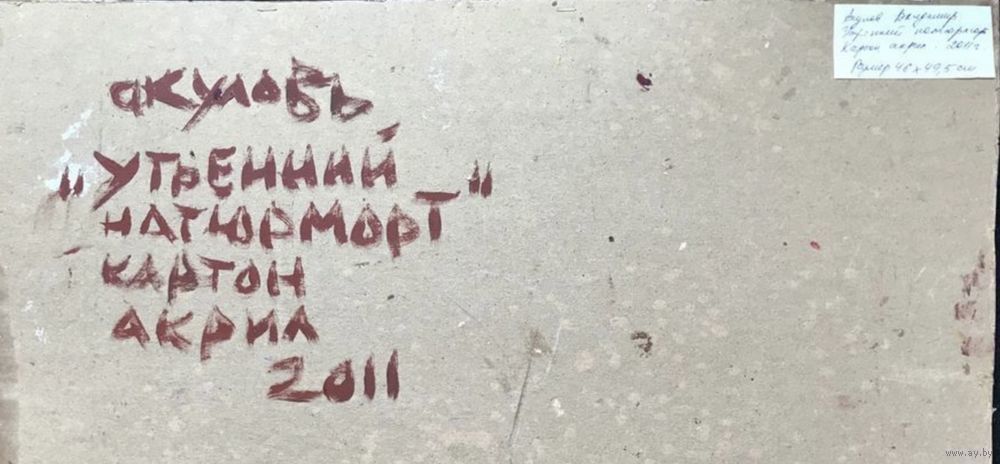 акуловъ
"УТРЕННИЙ
НАТЮРМОРТ"
КАРТОН
АКРИЛ
2011
Акулов Владимир
Утренний натюрморт
Картон акрил. 2011г
Размер 46 х 49,5 см
www.ay.by